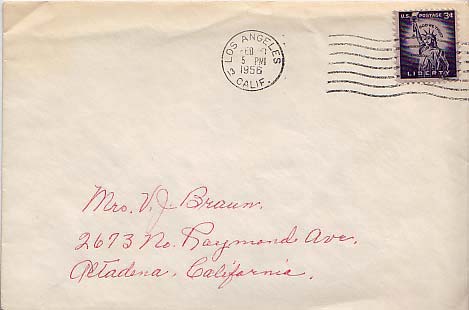 LOS ANGELES
5 PM
1956
CALIF.
U.S. POSTAGE 3¢
LIBERTY
Mrs. V. J. Braun.
2673 No. Raymond Ave.
Altadena, California.